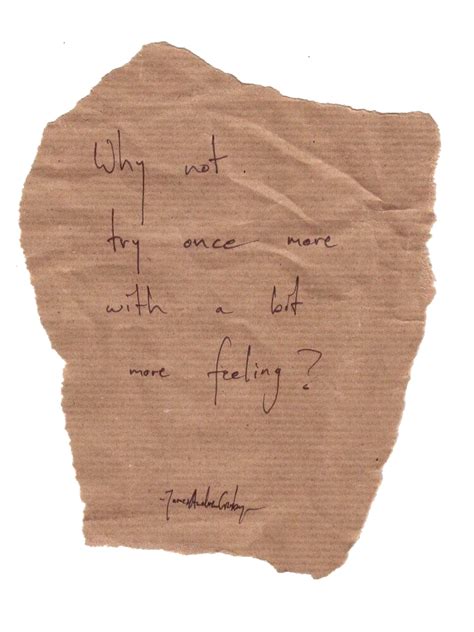 Why not
try once more
with a bit
more feeling?
-James Andrew Crosby-